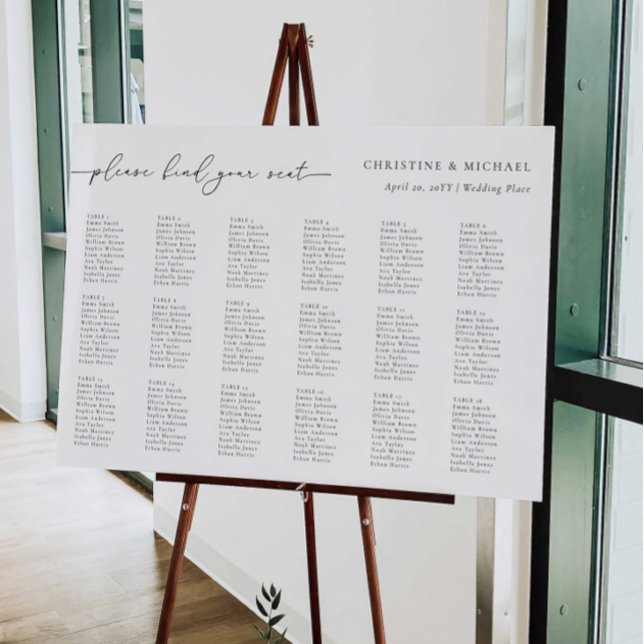 please find your seat
CHRISTINE & MICHAEL
April 20, 20YY | Wedding Place
TABLE 1
Emma Smith
James Johnson
Olivia Davis
William Brown
Sophia Wilson
Liam Anderson
Ava Taylor
Noah Martinez
Isabella Jones
Ethan Harris
TABLE 2
Emma Smith
James Johnson
Olivia Davis
William Brown
Sophia Wilson
Liam Anderson
Ava Taylor
Noah Martinez
Isabella Jones
Ethan Harris
TABLE 3
Emma Smith
James Johnson
Olivia Davis
William Brown
Sophia Wilson
Liam Anderson
Ava Taylor
Noah Martinez
Isabella Jones
Ethan Harris
TABLE 4
Emma Smith
James Johnson
Olivia Davis
William Brown
Sophia Wilson
Liam Anderson
Ava Taylor
Noah Martinez
Isabella Jones
Ethan Harris
TABLE 5
Emma Smith
James Johnson
Olivia Davis
William Brown
Sophia Wilson
Liam Anderson
Ava Taylor
Noah Martinez
Isabella Jones
Ethan Harris
TABLE 6
Emma Smith
James Johnson
Olivia Davis
William Brown
Sophia Wilson
Liam Anderson
Ava Taylor
Noah Martinez
Isabella Jones
Ethan Harris
TABLE 7
Emma Smith
James Johnson
Olivia Davis
William Brown
Sophia Wilson
Liam Anderson
Ava Taylor
Noah Martinez
Isabella Jones
Ethan Harris
TABLE 8
Emma Smith
James Johnson
Olivia Davis
William Brown
Sophia Wilson
Liam Anderson
Ava Taylor
Noah Martinez
Isabella Jones
Ethan Harris
TABLE 9
Emma Smith
James Johnson
Olivia Davis
William Brown
Sophia Wilson
Liam Anderson
Ava Taylor
Noah Martinez
Isabella Jones
Ethan Harris
TABLE 10
Emma Smith
James Johnson
Olivia Davis
William Brown
Sophia Wilson
Liam Anderson
Ava Taylor
Noah Martinez
Isabella Jones
Ethan Harris
TABLE 11
Emma Smith
James Johnson
Olivia Davis
William Brown
Sophia Wilson
Liam Anderson
Ava Taylor
Noah Martinez
Isabella Jones
Ethan Harris
TABLE 12
Emma Smith
James Johnson
Olivia Davis
William Brown
Sophia Wilson
Liam Anderson
Ava Taylor
Noah Martinez
Isabella Jones
Ethan Harris
TABLE 13
Emma Smith
James Johnson
Olivia Davis
William Brown
Sophia Wilson
Liam Anderson
Ava Taylor
Noah Martinez
Isabella Jones
Ethan Harris
TABLE 14
Emma Smith
James Johnson
Olivia Davis
William Brown
Sophia Wilson
Liam Anderson
Ava Taylor
Noah Martinez
Isabella Jones
Ethan Harris
TABLE 15
Emma Smith
James Johnson
Olivia Davis
William Brown
Sophia Wilson
Liam Anderson
Ava Taylor
Noah Martinez
Isabella Jones
Ethan Harris
TABLE 16
Emma Smith
James Johnson
Olivia Davis
William Brown
Sophia Wilson
Liam Anderson
Ava Taylor
Noah Martinez
Isabella Jones
Ethan Harris
TABLE 17
Emma Smith
James Johnson
Olivia Davis
William Brown
Sophia Wilson
Liam Anderson
Ava Taylor
Noah Martinez
Isabella Jones
Ethan Harris
TABLE 18
Emma Smith
James Johnson
Olivia Davis
William Brown
Sophia Wilson
Liam Anderson
Ava Taylor
Noah Martinez
Isabella Jones
Ethan Harris